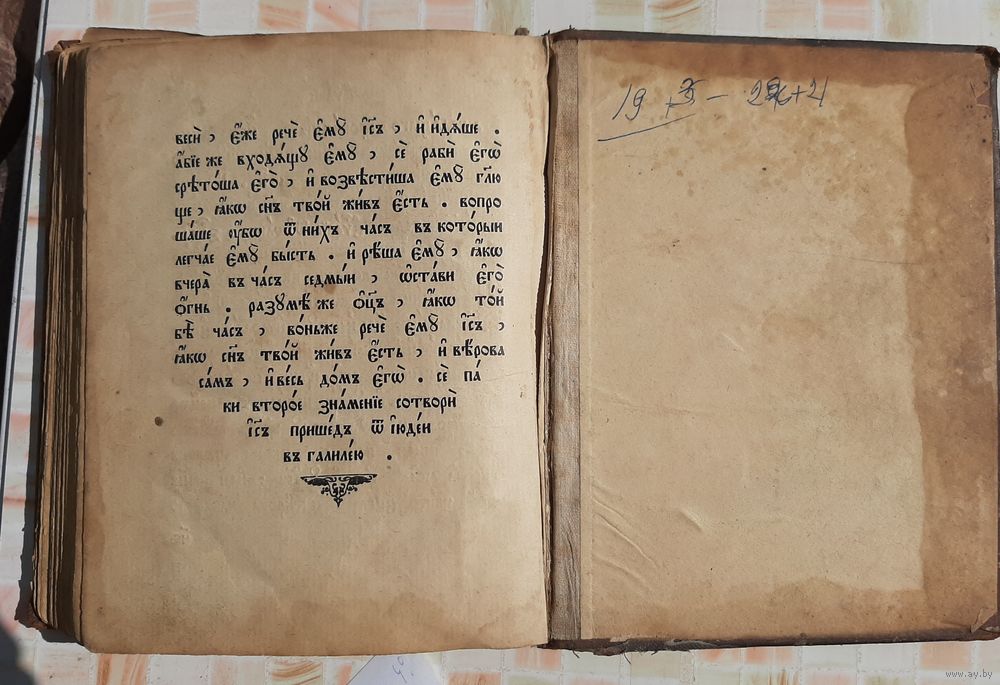 весѝ , є҆́же речѐ є҆мꙋ̀ і҆и҃съ , и҆ и҆дѧ́ше .
а҆́бїе же входѧ́щꙋ є҆мꙋ̀ , сѐ рабѝ є҆гѡ̀
срѣто́ша є҆го̀ , и҆ возвѣсти́ша є҆мꙋ̀ гл҃ю
ще , ꙗ҆́кѡ сн҃ъ тво́й жи́въ є҆́сть . вопро
ша́ше ᲂу҆́бѡ ѿ ни́хъ ча́съ въ кото́рыи
легча́е є҆мꙋ̀ бы́сть . и҆ рѣ́ша є҆мꙋ̀ , ꙗ҆́кѡ
вчера̀ въ ча́съ седмы́и , ѡ҆ста́ви є҆го̀
ѻ҆́гнь . разꙋмѣ́ же ѻ҆ц҃ъ , ꙗ҆́кѡ то́й
бѣ̀ ча́съ , во́ньже речѐ є҆мꙋ̀ і҆и҃съ ,
ꙗ҆́кѡ сн҃ъ тво́й жи́въ є҆́сть , и҆ вѣ́рова
са́мъ , и҆ ве́сь до́мъ є҆гѡ̀ . сѐ па́
ки второ́е зна́менїе сотворѝ
і҆и҃съ прише́дъ ѿ і҆юде́и
въ галиле́ю .
19
www.ay.by